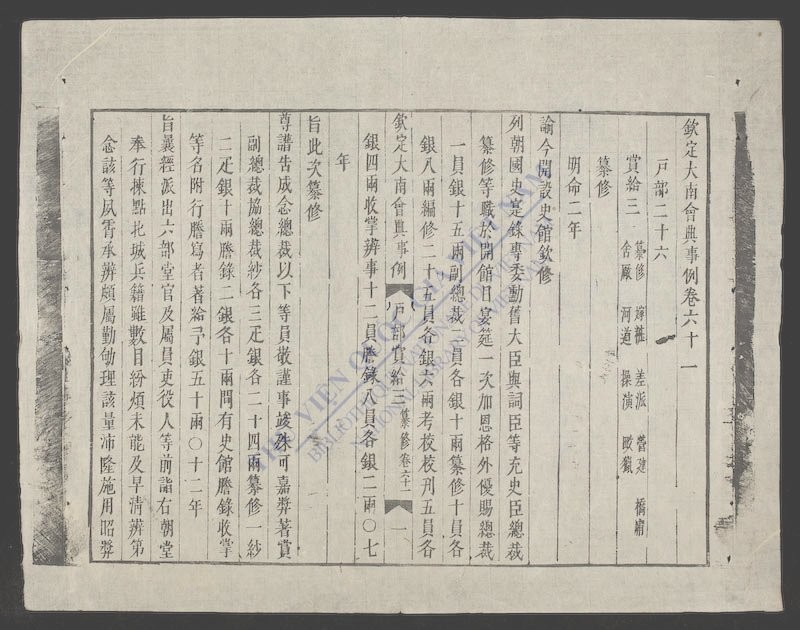 欽定大南會典事例卷六十一
戸部二十六
賞給三 纂修 嫁粧 差派 營建 橋牐
舍廠 河道 操演 畋獵
纂修
明命二年
諭今開設史館欽修
列朝國史寔錄專委勳舊大臣與詞臣等充史臣總裁
纂修等職於開館日宴筵一次加恩格外優賜總裁
一員銀十五兩副總裁二員各銀十兩纂修十員各
銀八兩編修二十五員各銀六兩考校校刊五員各
欽定大南會典事例 戸部賞給三 纂修 卷六十一 一
銀四兩收掌辨事十二員謄錄八員各銀二兩〇七
年
旨此次纂修
尊譜告成念總裁以下等員敬謹事竣殊可嘉獎著賞
副總裁協總裁紗各三疋銀各二十四兩纂修一紗
二疋銀十兩謄錄二銀各十兩間有史館謄錄收掌
等名附行謄寫者著給予銀五十兩〇十二年
旨曩經派出六部堂官及屬員吏役人等前詣右朝堂
奉行揀點北城兵籍雖數目紛煩未能及早清辨第
念該等夙霄承辨頗屬勤勉理該量沛隆施用昭獎
THƯ VIỆN QUỐC GIA VIỆT NAM
BIBLIOTHÈQUE NATIONALE DU VIETNAM
NATIONAL LIBRARY OF VIETNAM